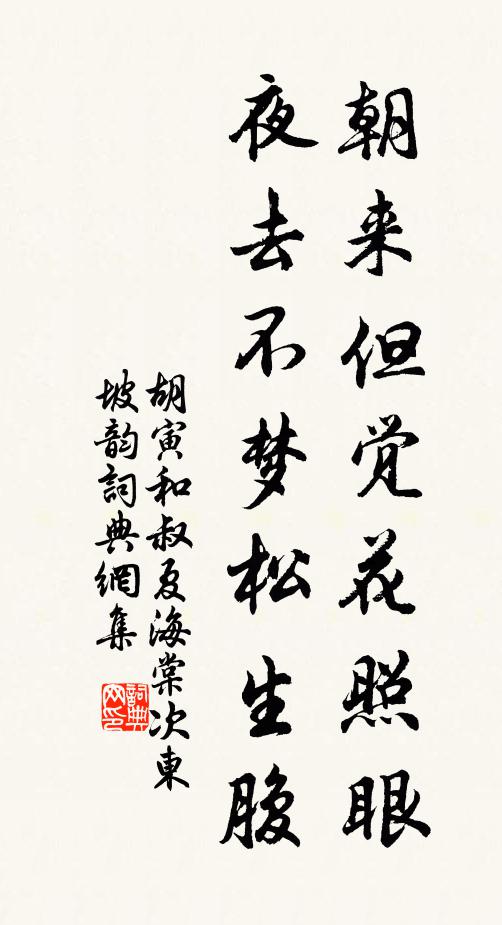 朝来但觉花照眼
夜去不梦松生腹
胡寅和叔夏海棠次東
坡韵詞典網集
詞典
网印